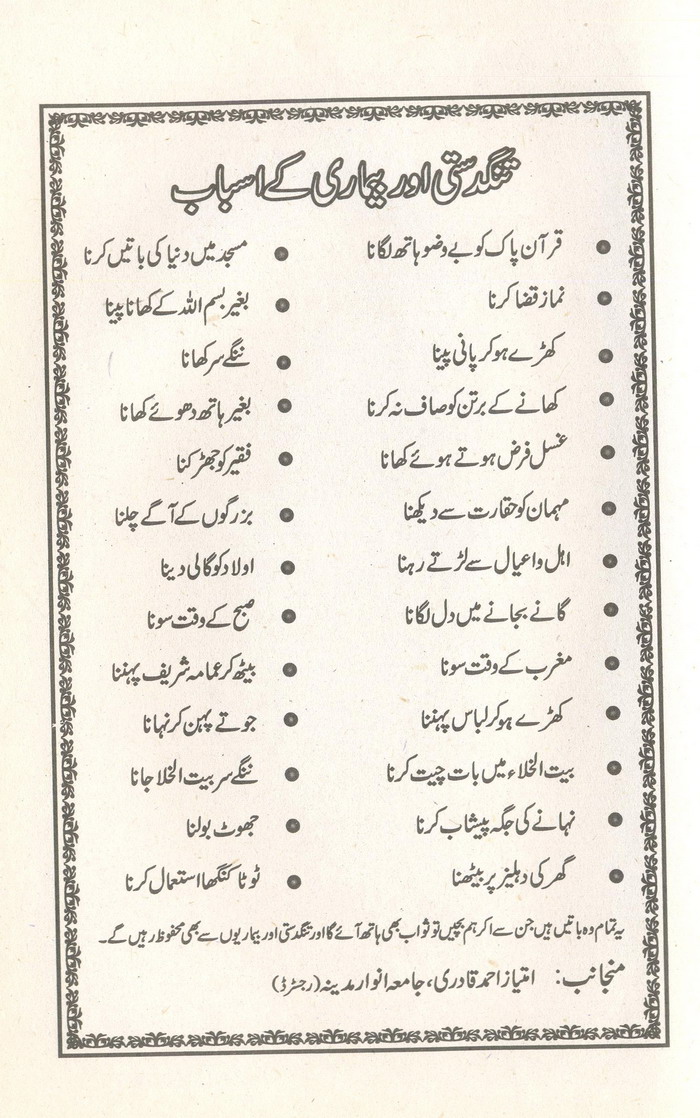 تنگدستی اور بیماری کے اسباب
قرآن پاک کو بے وضو ہاتھ لگانا
نماز قضا کرنا
کھڑے ہو کر پانی پینا
کھانے کے برتن کو صاف نہ کرنا
غسل فرض ہوتے ہوئے کھانا
مہمان کو حقارت سے دیکھنا
اہل و اعیال سے لڑتے رہنا
گانے بجانے میں دل لگانا
مغرب کے وقت سونا
کھڑے ہو کر لباس پہننا
بیت الخلاء میں بات چیت کرنا
نہانے کی جگہ پیشاب کرنا
گھر کی دہلیز پر بیٹھنا
مسجد میں دنیا کی باتیں کرنا
بغیر بسم اللہ کے کھانا پینا
ننگے سر کھانا
بغیر ہاتھ دھوئے کھانا
فقیر کو جھڑکنا
بزرگوں کے آگے چلنا
اولاد کو گالی دینا
صبح کے وقت سونا
بیٹھ کر عمامہ شریف پہننا
جوتے پہن کر نہانا
ننگے سر بیت الخلا جانا
جھوٹ بولنا
ٹوٹا کنگھا استعمال کرنا
یہ تمام وہ باتیں ہیں جن سے اگر ہم بچیں تو ثواب بھی ہاتھ آئے گا اور تنگدستی اور بیماریوں سے بھی محفوظ رہیں گے۔
منجانب: امتیاز احمد قادری، جامعہ انوار مدینہ (رجسٹرڈ)